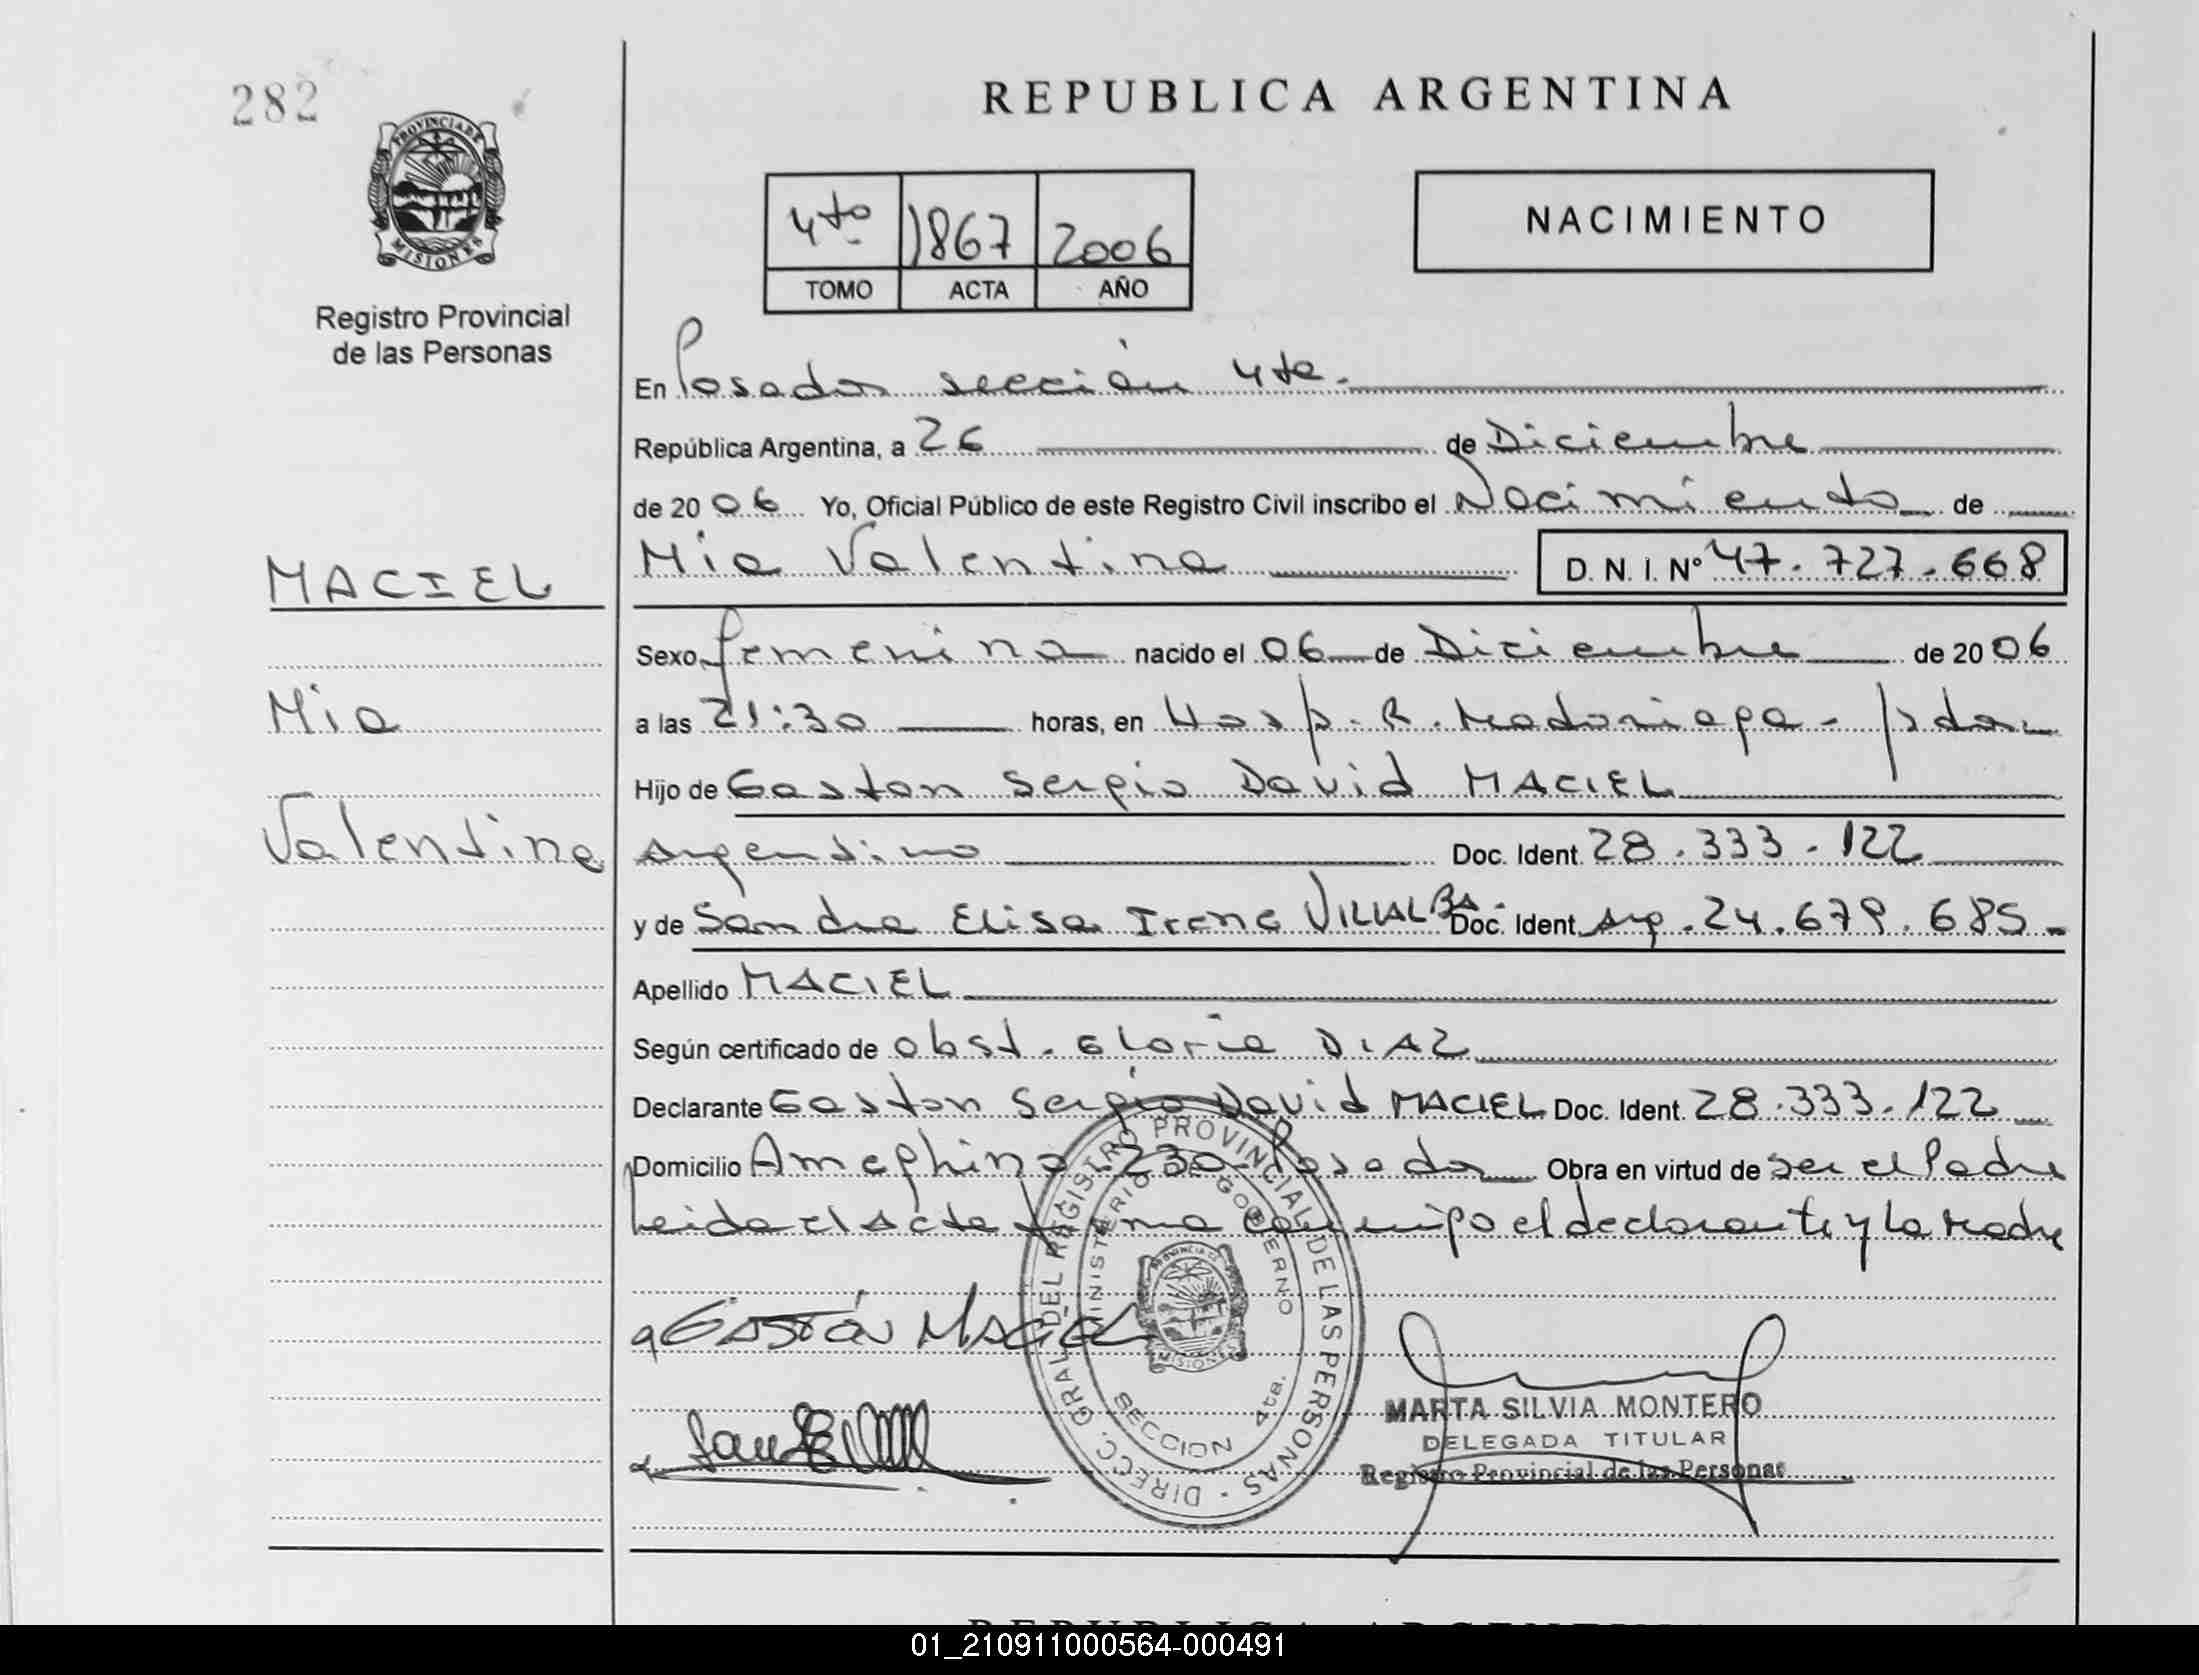 282
PROVINCIA DE
MISIONES
Registro Provincial
de las Personas
REPUBLICA ARGENTINA
4to 1867 2006
TOMO ACTA AÑO
NACIMIENTO
En Posadas sección 4ta.
República Argentina, a 26 de Diciembre
de 2006 Yo, Oficial Público de este Registro Civil inscribo el Nacimiento de
MACIEL
Mia Valentina D. N. I. Nº 47.727.668
Sexo femenina nacido el 06 de Diciembre de 2006
Mia
a las 21:30 horas, en Hosp. R. Madariaga - Pdas
Hijo de Gaston Sergio David MACIEL
Valentina
Argentino Doc. Ident. 28.333.122
y de Sandra Elisa Irene VILLALBA- Doc. Ident. Arg. 24.679.685-
Apellido MACIEL
Según certificado de Obst. Gloria DIAZ
Declarante Gaston Sergio David MACIEL Doc. Ident. 28.333.122
Domicilio Ameghino 230 Posadas Obra en virtud de ser el Padre
Leida el Acta firma conmigo el declarante y la Madre
DIRECC. GRAL. DEL REGISTRO PROVINCIAL DE LAS PERSONAS -
MINISTERIO DE GOBIERNO
PROVINCIA DE
MISIONES
SECCION 4ta.
GASTÓN MACIEL
MARTA SILVIA MONTERO
DELEGADA TITULAR
Registro Provincial de las Personas
01_210911000564-000491